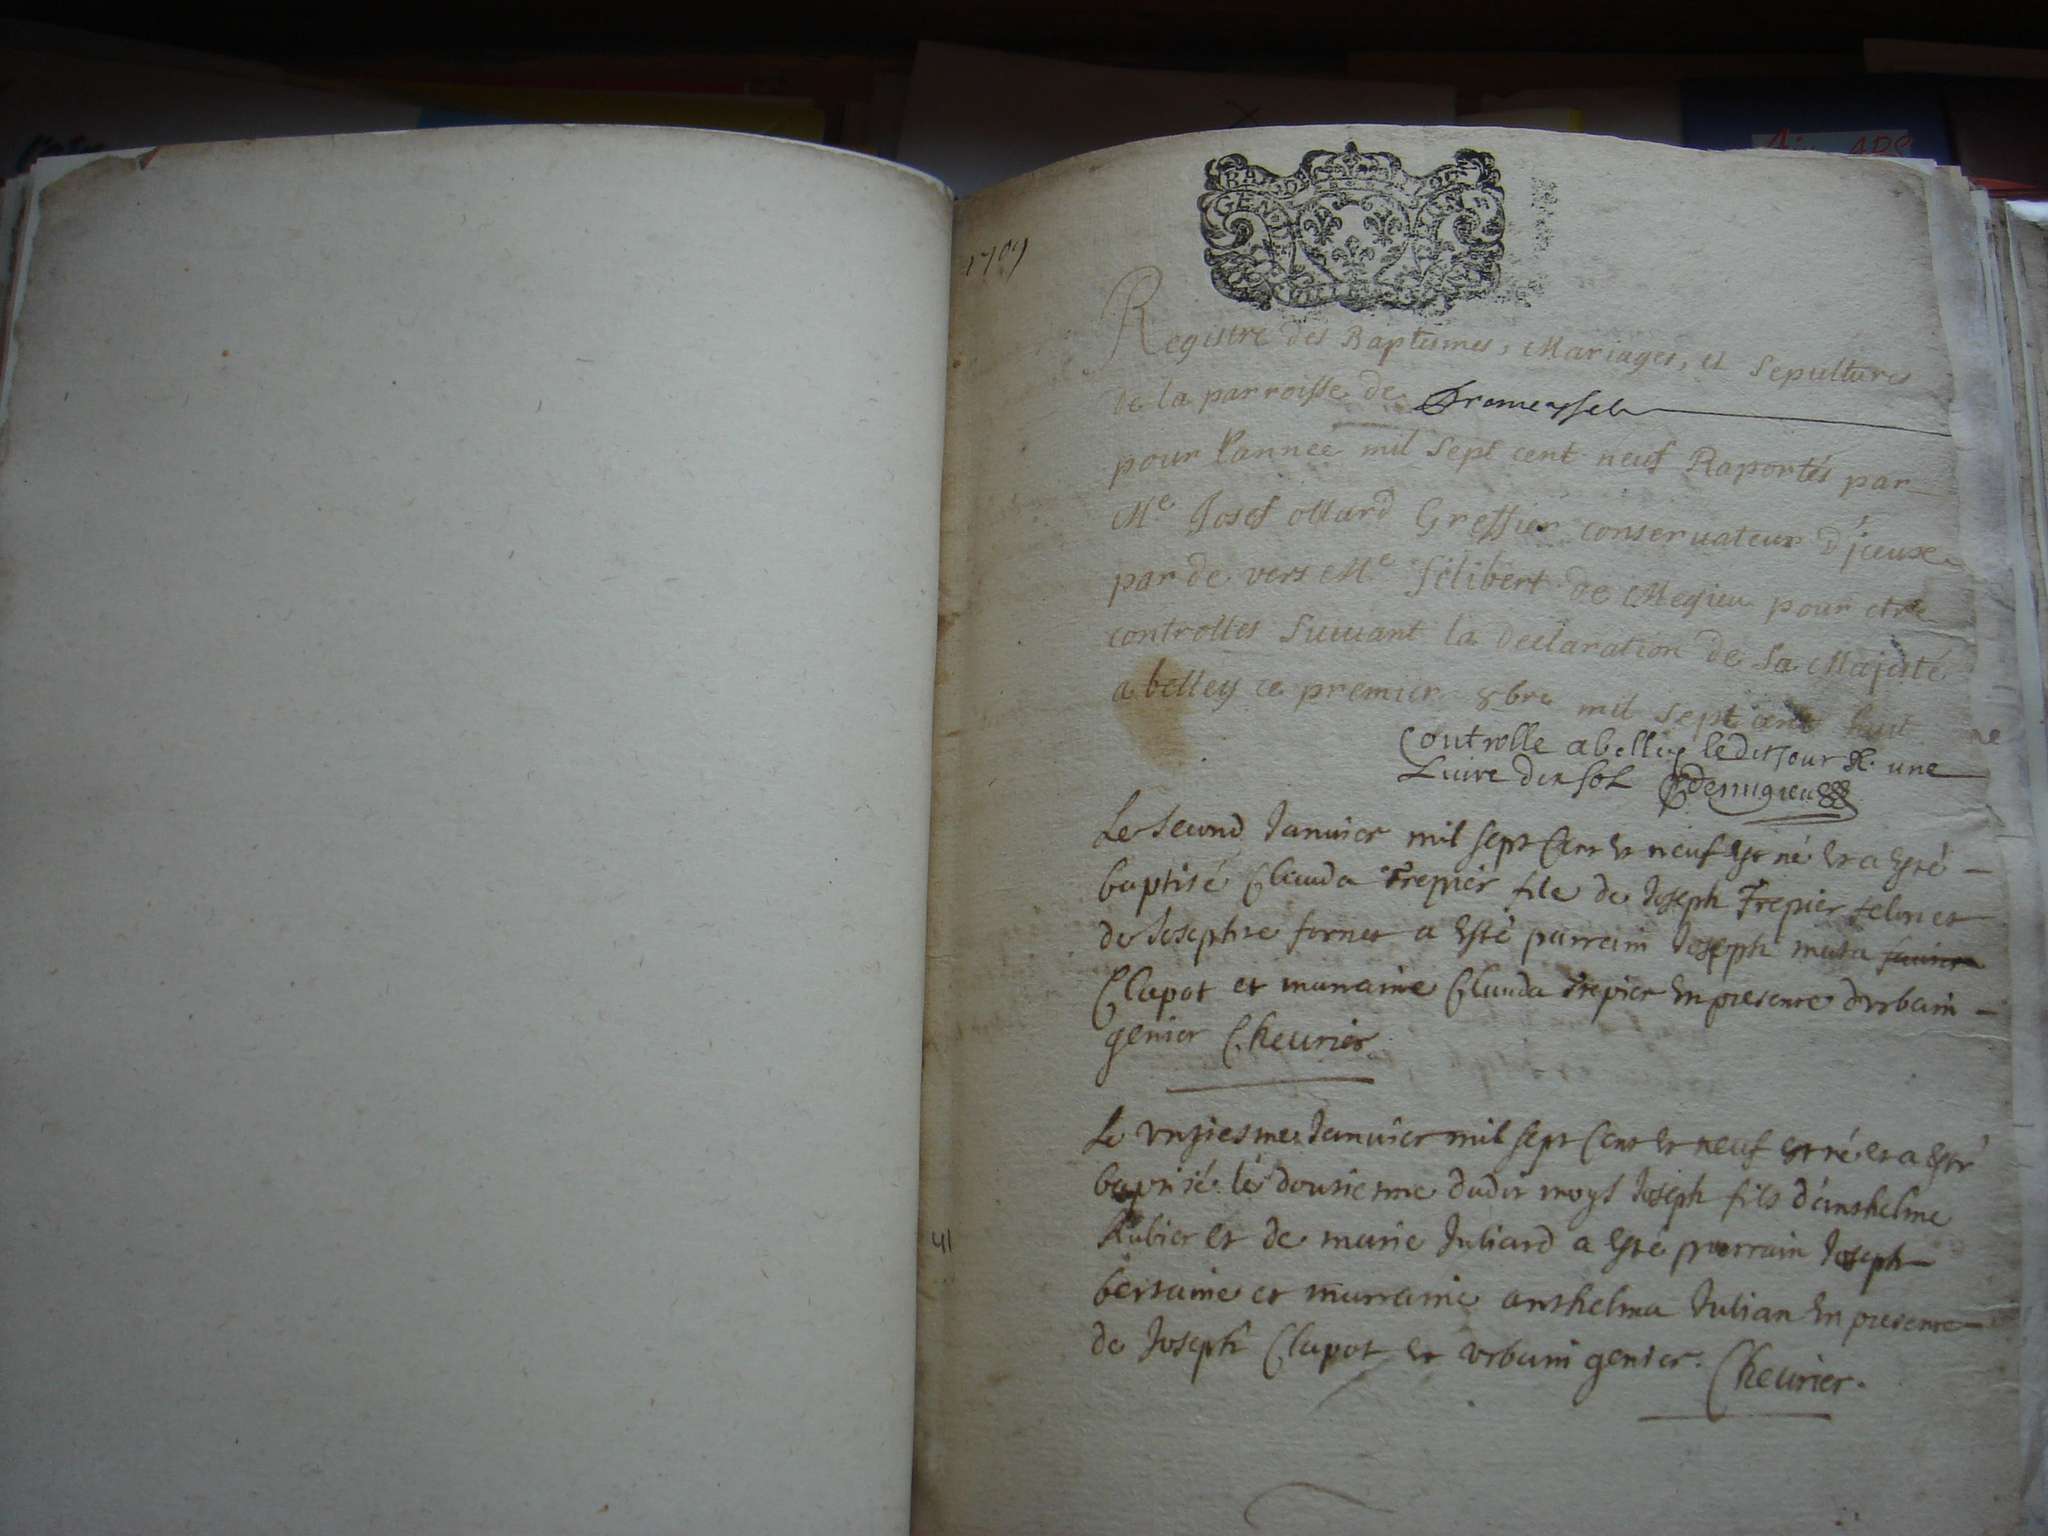 1709
GEND
Registre des Baptesmes, Mariages, et Sepultures
de la parroisse de Premeyssel
pour l'annee mil sept cent neuf Raportés par
Me Josef ollard Greffier conseruateur d'jceux
par de vers Me filibert de Megieu pour etre
controlles suiuant la declaration de Sa Majesté
a belley ce premier 8bre mil sept cent huit
Controlle a belley ledit jour R. une
Liure dix sol Demigieu
Le second Januier mil sept Cent et neuf Est né et a Esté
baptisé Clauda Trepier file de Joseph Trepier et
de Josephte fornet a Esté parrain Joseph
Clapot et marraine Clauda Trepier En presence d'vrbain
genier Cheurier
Le vnziesme Januier mil sept Cent et neuf Est né et a Esté
baptisé le dousiesme dudit moys Joseph fils d'anthelme
Rubier et de marie Juliard a Esté parrain Joseph
bertaine et marraine anthelma Julian En presence
de Joseph Clapot et vrbain genier. Cheurier.
41